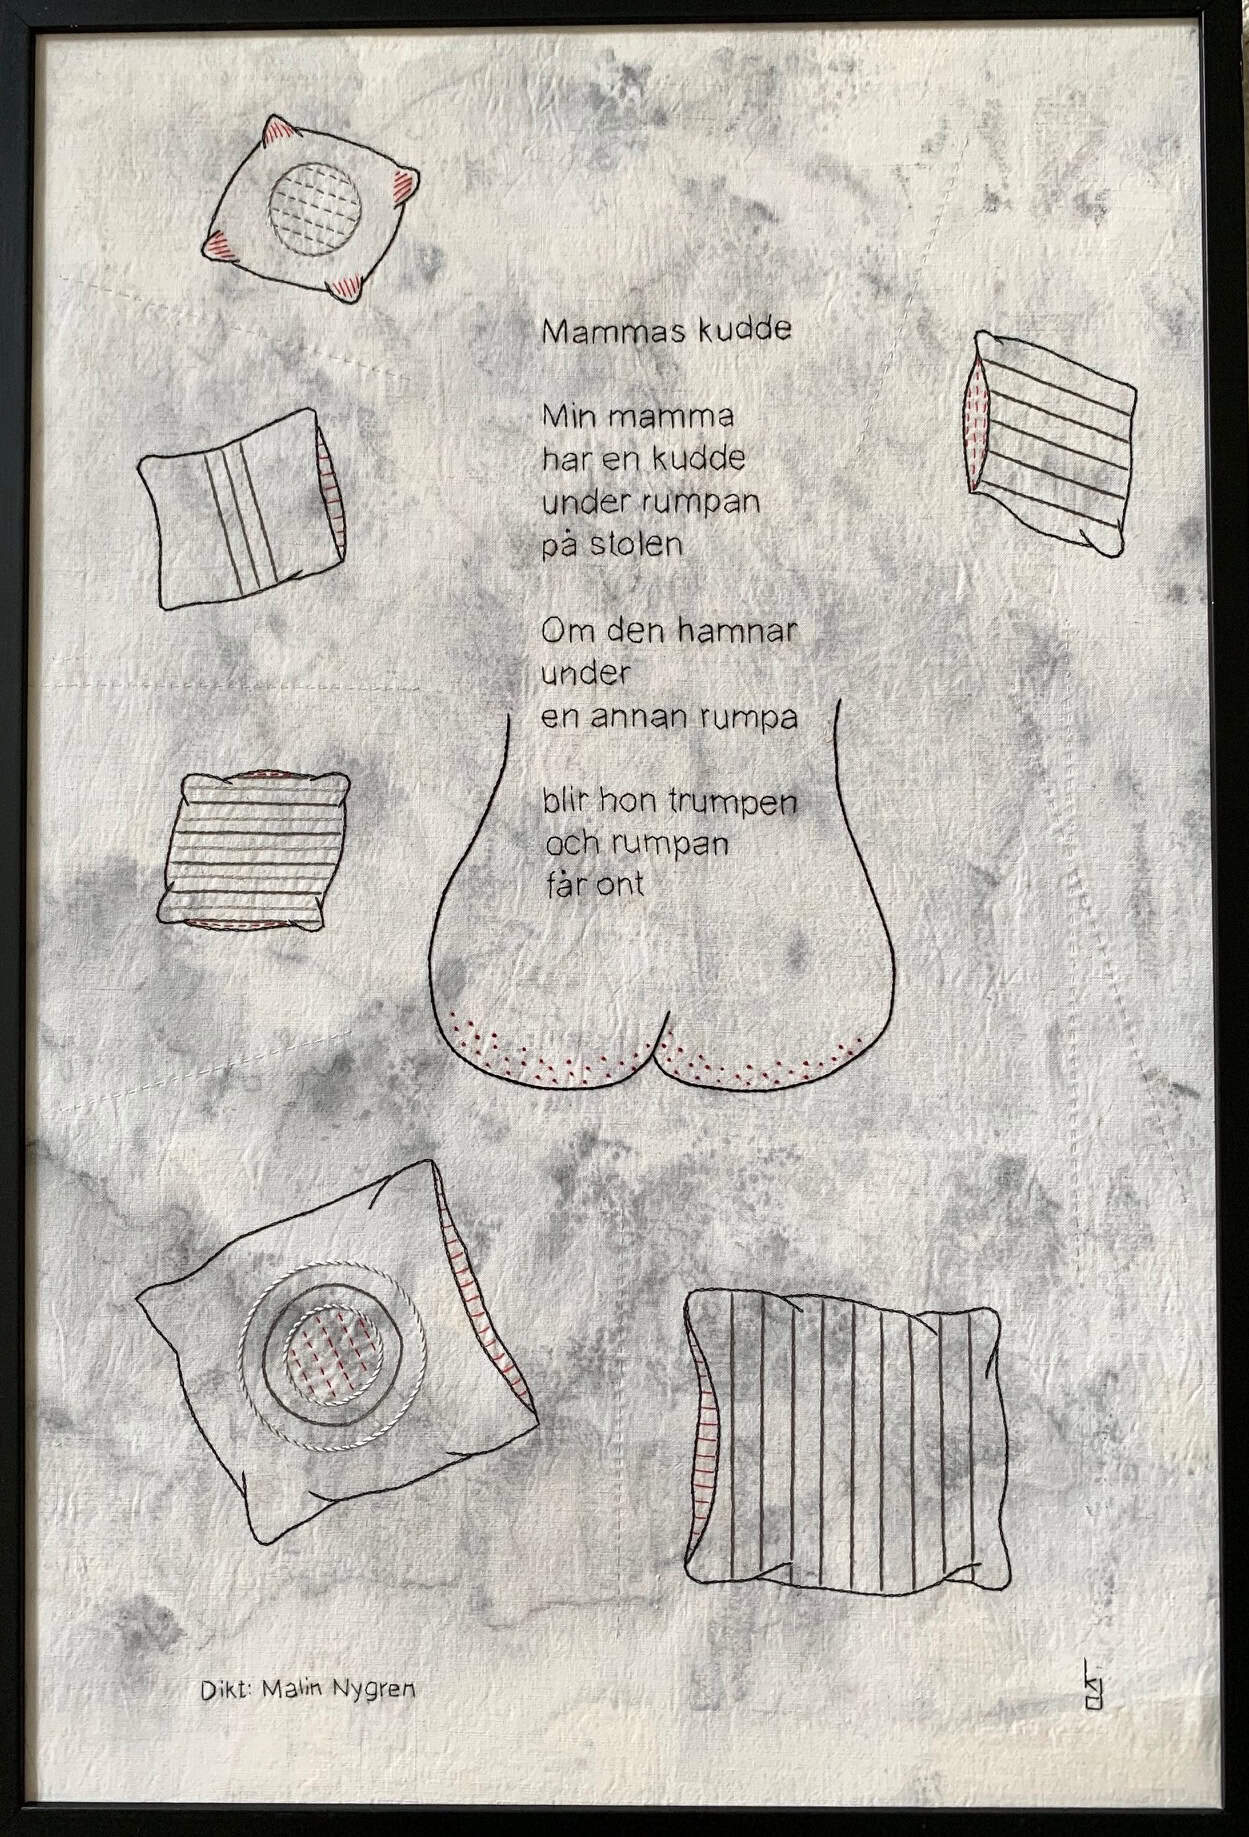 Mammas kudde
Min mamma
har en kudde
under rumpan
på stolen
Om den hamnar
under
en annan rumpa
blir hon trumpen
och rumpan
får ont
Dikt: Malin Nygren